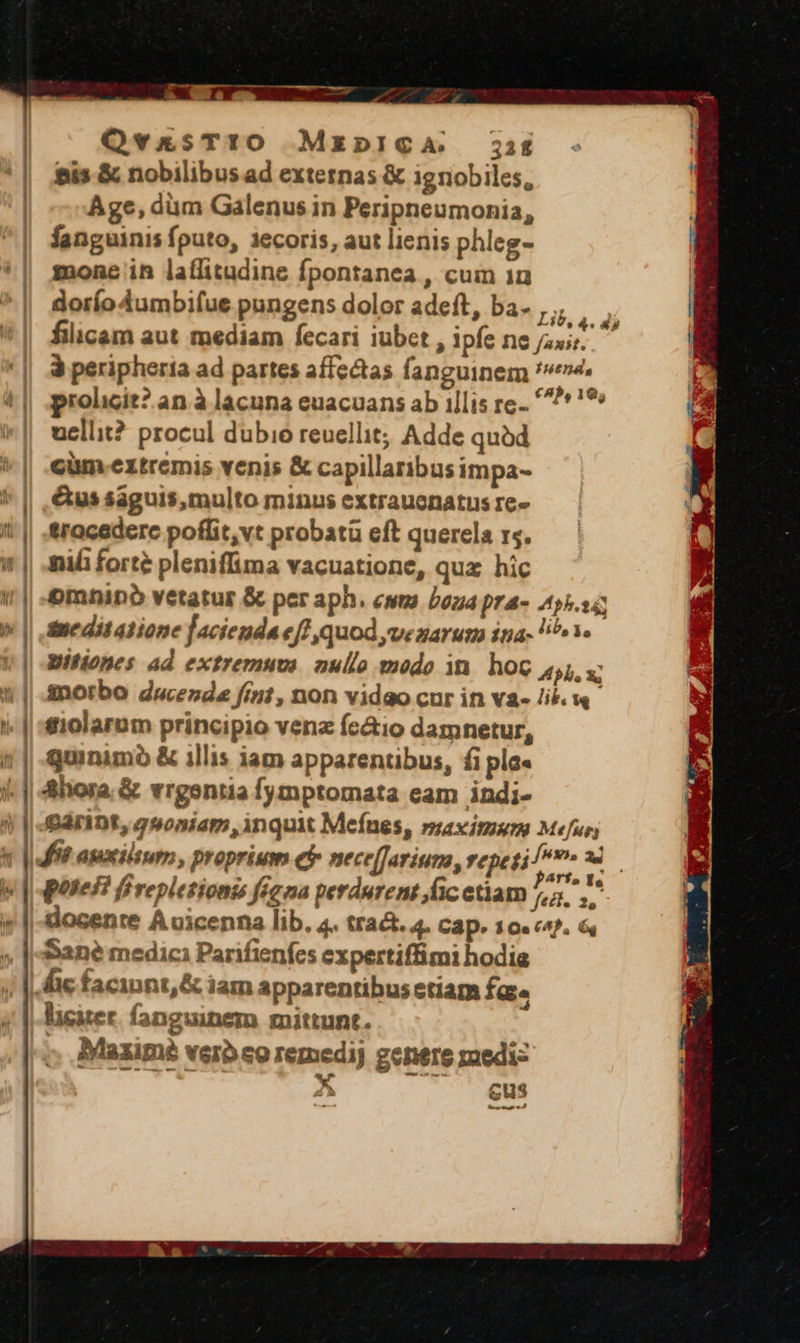 QVÆSTIO MEDICA. 321
nis & nobilibus ad externas & ignobiles,
Age, dùm Galenus in Peripneumonia,
ſanguinis ſputo, iecoris, aut lienis phleg-
mone in laſſitudine ſpontanea, cum in
dorſo lumbiſue pungens dolor adeſt, ba-
ſilicam aut mediam ſecari iubet, ipſe ne
à peripheria ad partes affectas ſanguinem
prolicit? an à lacuna euacuans ab illis re-
uellit? procul dubio reuellit; Adde quòd
cùm extremis venis & capillaribus impa-
ctus sãguis, multo minus extrauenatus re-
trocedere poſſit, vt probatũ eſt querela 15.
niſi fortè pleniſſima vacuatione, quæ hîc
omninò vetatur & per aph. cum bona præ-
meditatione facienda eſt, quod, venarum ina-
nitiones ad extremum nullo modo in hoc
morbo ducendæ ſint, non video cur in va-
riolarum principio venæ ſectio damnetur,
quinimò & illis iam apparentibus, ſi ple-
thora & vrgentia ſymptomata eam indi-
carint, quoniam, inquit Meſues, maximum
ſit auxilium, proprium & neceſſarium, repeti
poteſt ſi repletionis ſigna perdurent, ſic etiam
docente Auicenna lib. 4. tract. 4. cap. 10.
Sanè medici Pariſienſes expertiſſimi hodie
ſic faciunt, & iam apparentibus etiam fœ-
liciter ſanguinem mittunt.
Maximè verò eo remedij genere medi-
X cus
Lib. 4. de
ſanit.
tuend.
cap. 10,
Aph. 24
lib. 1.
Aph.
lib. 1.
Meſue,
cap. 6,